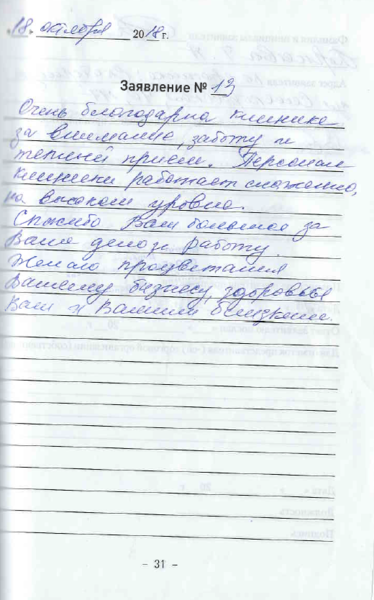 18. октября 2018 г.
Заявление № 13
Очень благодарна клинике
за внимание, заботу и
теплый прием. Персонал
клиники работает слаженно,
на высоком уровне.
Спасибо Вам большое за
Ваше дело и работу.
Желаю процветания
Вашему бизнесу, здоровья
Вам и Вашим близким.
- 31 -